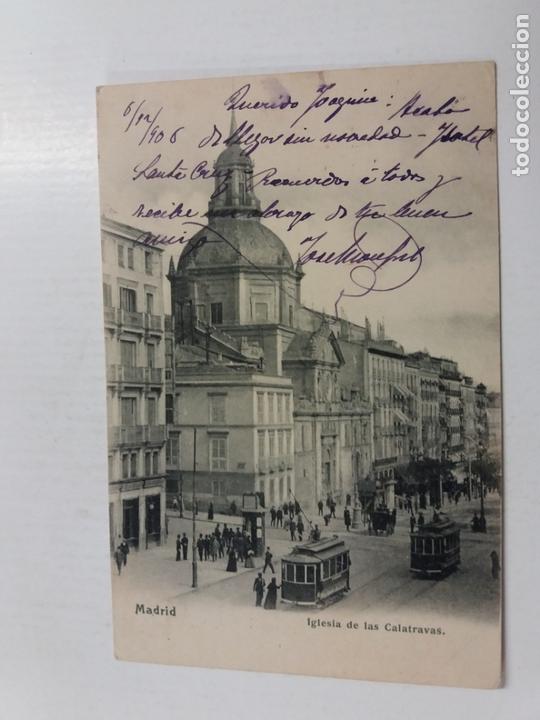 6/12/906
Querido Joaquin: Acabo
de llegar sin novedad - Hotel
Santa Cruz Recuerdos á todos y
recibe un abrazo de tu buen
amigo José
Madrid
Iglesia de las Calatravas.
todocoleccion.net